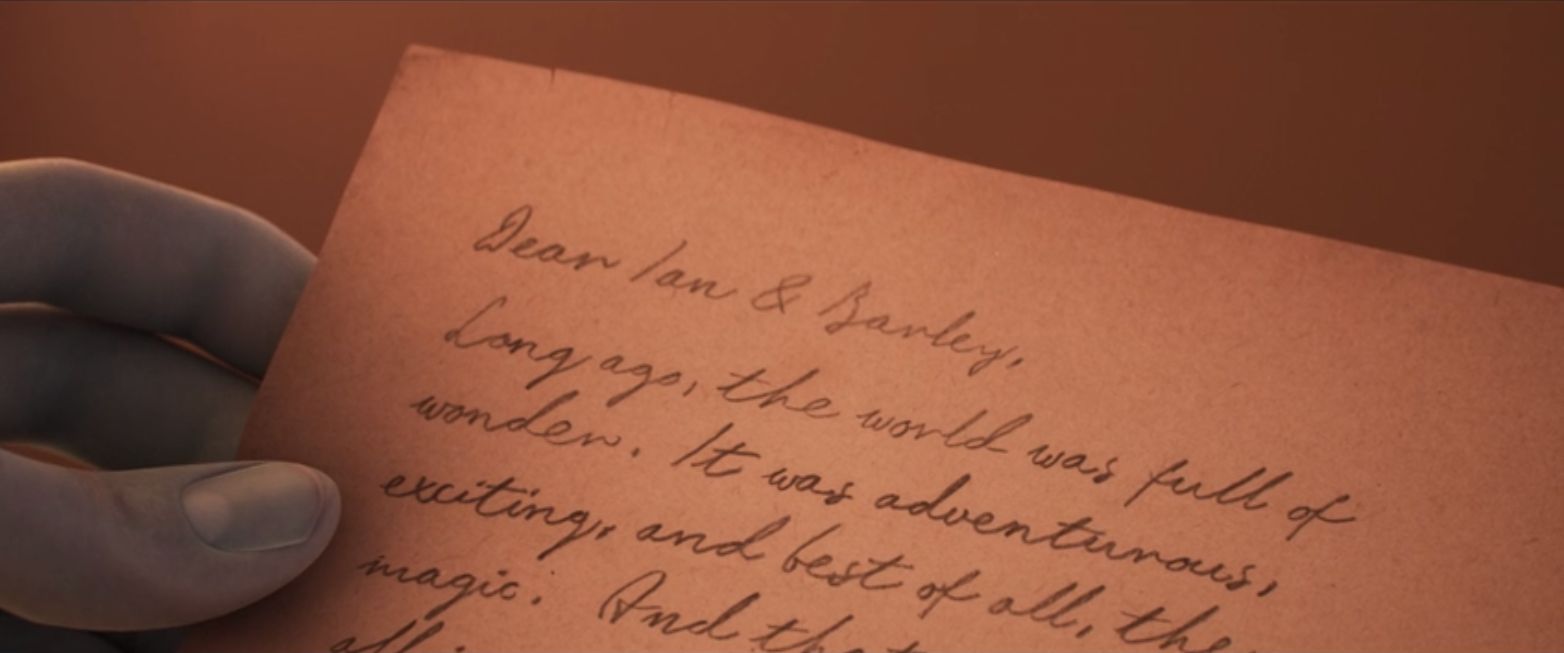 Dear Ian & Barley,
Long ago, the world was full of
wonder. It was adventurous,
exciting, and best of all, the
magic. And